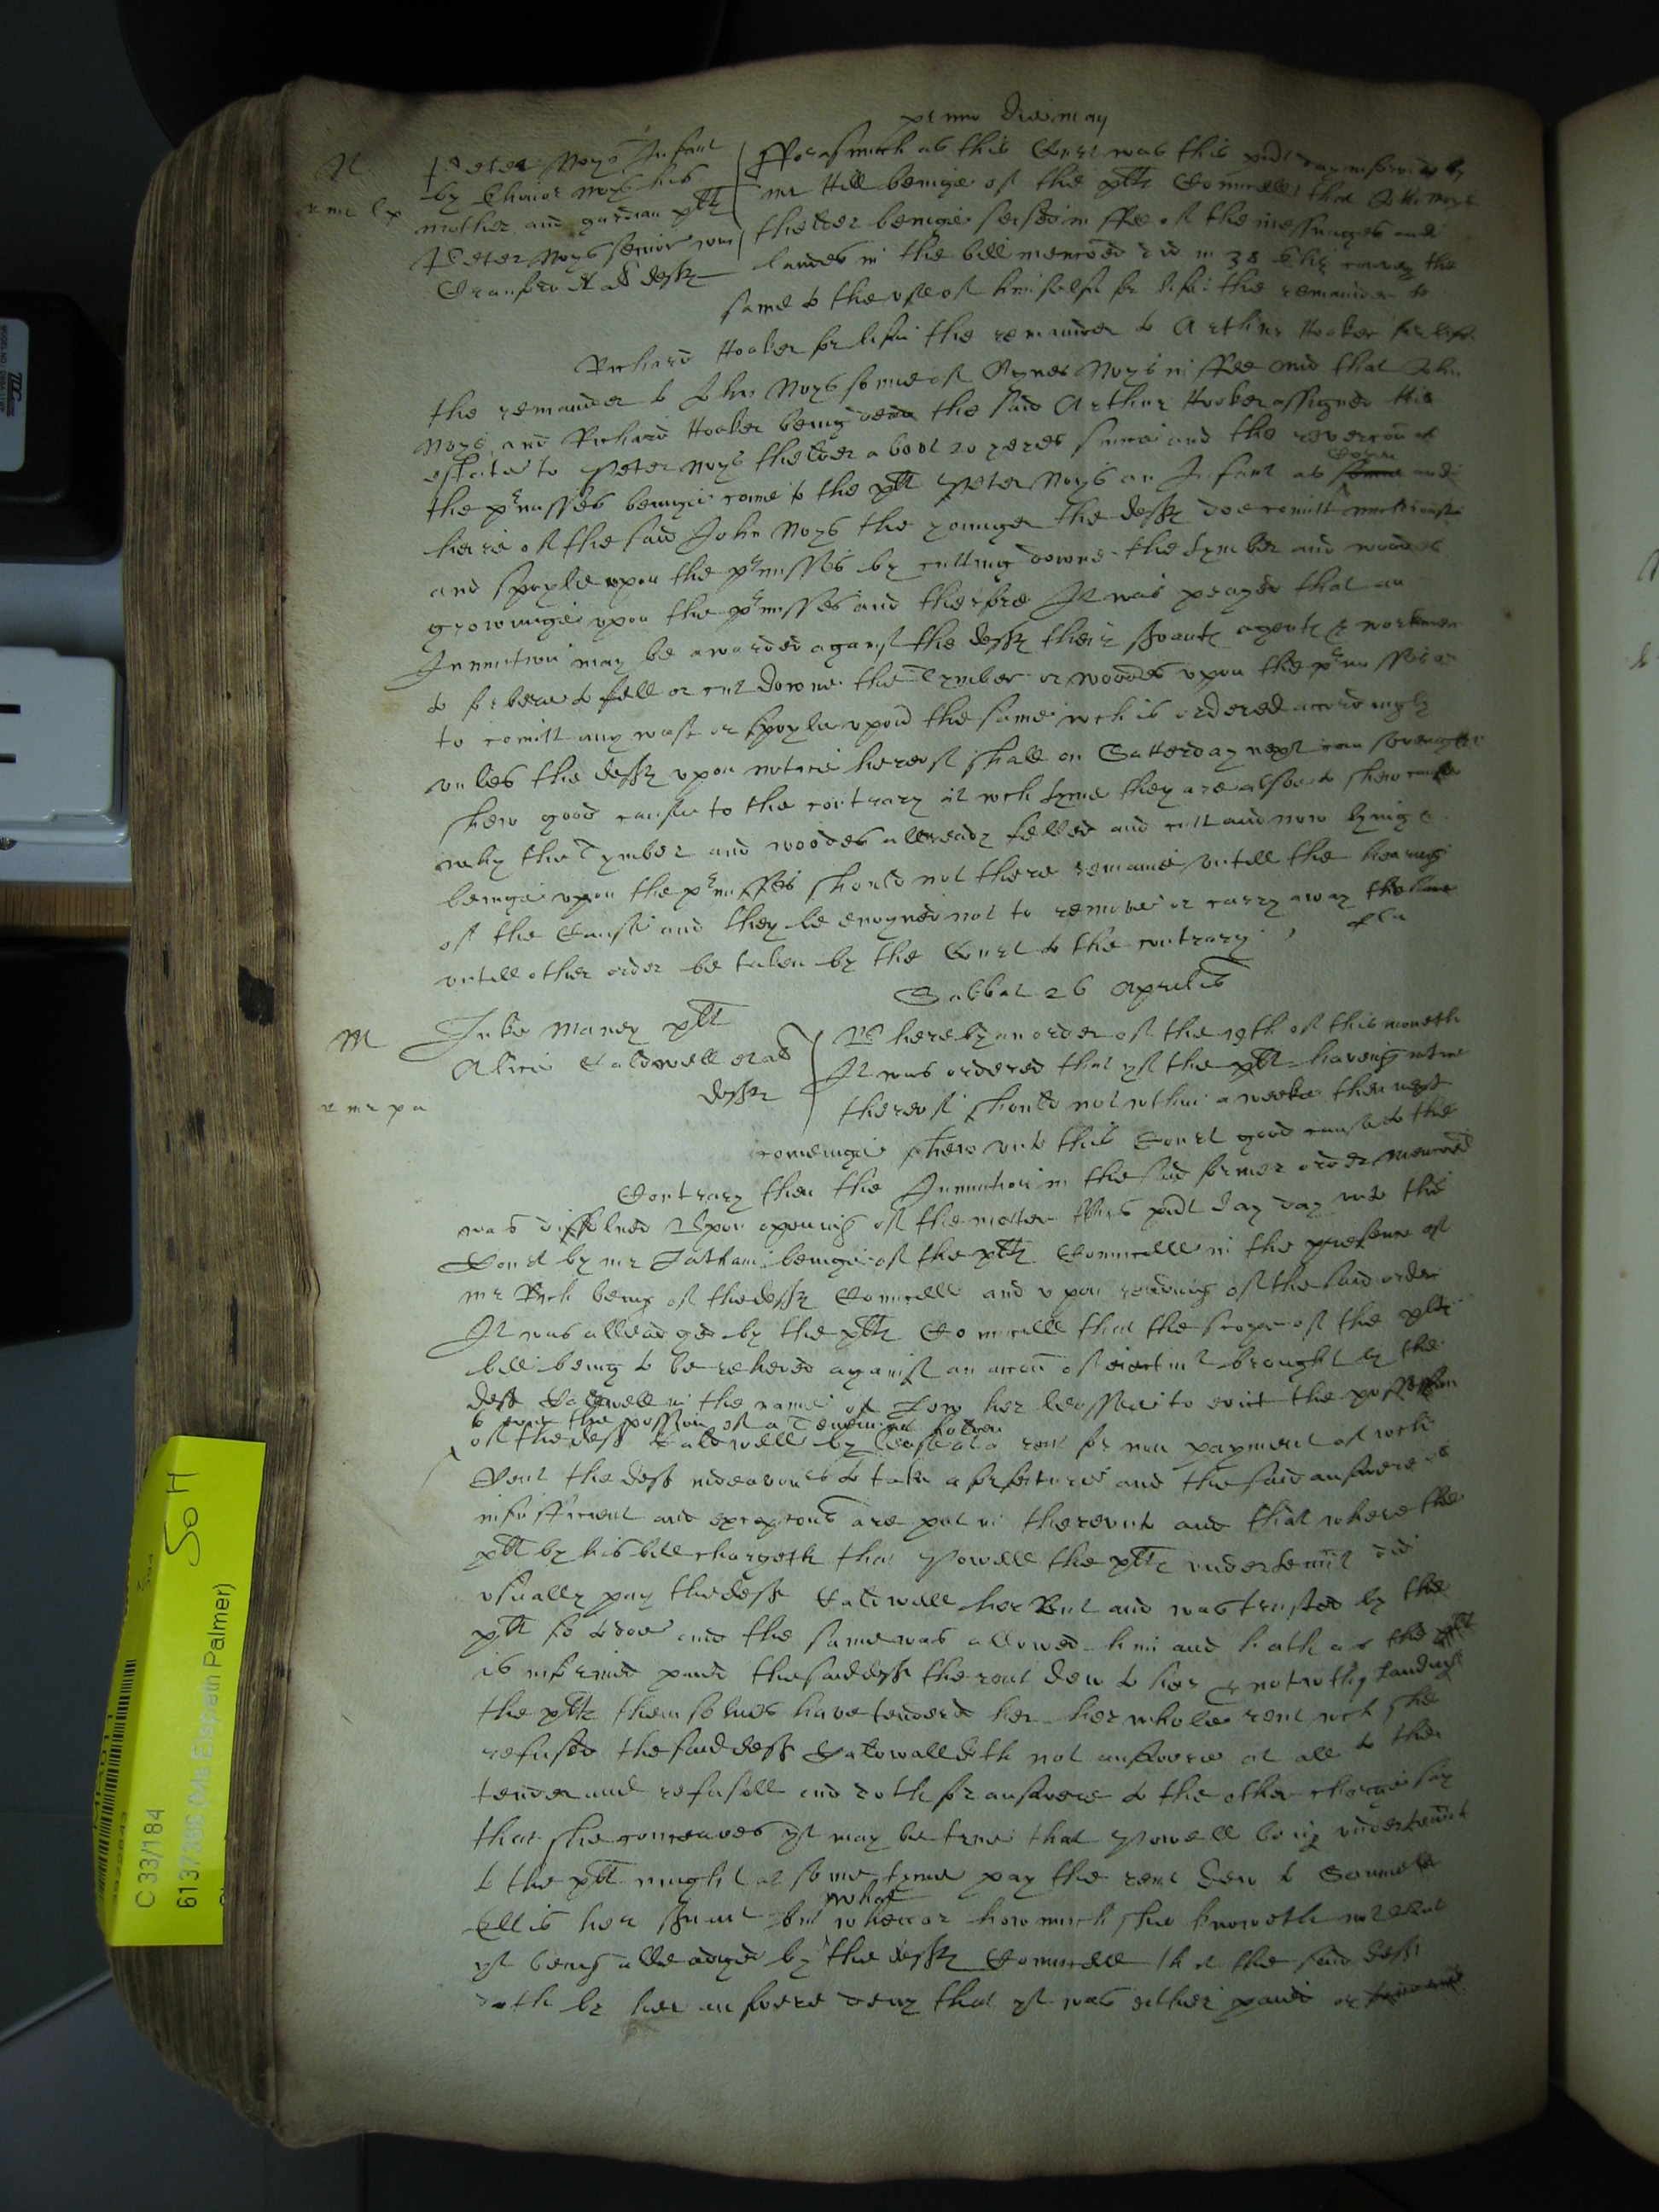 primo die may
N
Peter Noys Infant
by Elnor Noys his
mother and gardian plt
Peter Noys senior wm
Cranford et al defts
Forasmuch as this Court was this pnt day informed by
mr Hill beinge of the plts Councell that John Noys
thelder beinge seised in ffee of the messuages and
landes in the bill menconed did in 38 Eliz convey the
same to the use of himselfe for life the remainder to
Richard Hooker for life the remainder to Arthur Hooker for life
the remainder to John Noys sonne of Agnes Noys in ffee and that John
Noys and Richard Hooker being dead the said Arthur Hooker assigned his
estate to Peter Noys thelder about 20 yeres since and the revercon of
the pr̃misses beinge come to the plt Peter Noys an Infant as Cosen and
heire of the said John Noys the younger the defts doe comitt much wast
and spoyle upon the pr̃misses by cutting downe the tymber and woodes
growinge upon the pr̃misses and therefore It was prayed that an
Iniunction may be awarded against the defts their srvants agents & workmen
to forbere to fell or cut downe the Tymber or woodes upon the pr̃misses or
to comitt any wast or spoyle upon the same wch is ordered accordingly
unles the defts upon notice hereof shall on Satterday next come sevenight
shew good cause to the contrary at wch tyme they are also to shew cause
why the Tymber and woodes allready felled and cutt and now lyinge
beinge upon the pr̃misses should not there remaine untill the hearing
of the Cause and they be enioyned not to remove or carry away the same
untill other order be taken by the Court to the contrary
Sabbat 26 Aprilis
M
Maney plt
Alice Caldwell et al
defts
Whereby an order of the 19th of this moneth
It was ordered that yf the plt having notice
thereof should not within a weeke then next
comeinge shew unto this Court good cause to the
Contrary then the Iniunction in the said former order menconed
was dissolued Upon opening of the matter this pnt day day unto this
Court by mr Latham beinge of the plts Councell in the presence of
mr Rich being of the defts Councell and upon reading of the said order
It was alleadged by the plts Councell that the scope of the plts
bill being to be releived against an accon of eiectmt brought by the
deft Caldwell in the name of her lessee to evict the possession
to the possion of a Tenemt holden
of the deft Caldwell by lease at a rent for non payment of wch
Rent the deft endeavours to take a forfeiture and the said answere is
insufficient and excepcons are put in thereunto and that where the
plt by his bill chargeth that Powell the plts undertennt did
usually pay the deft Caldwell her Rent and was trusted by the
plt so to doe and the same was allowed him and hath as the plt
is informed paid the said deft the rent dew to her & notwithstandinge
the plts themselves have tendered her her whole rent wch she
refused the said deft Caldwall doth not answere at all to the
tender and refusall and doth for answere to the other charge say
that she conceaves yt may be true that Powell being undertennt
to the plt might at some tyme pay the rent dew to Samuell
Ellis her srvant but when what or how much she knoweth not But
yt being alleadged by the defts Councell that the said deft
doth by her answere deny that yt was either paid or
C 33/184
6137386 (Ms Elspeth Palmer)
So H